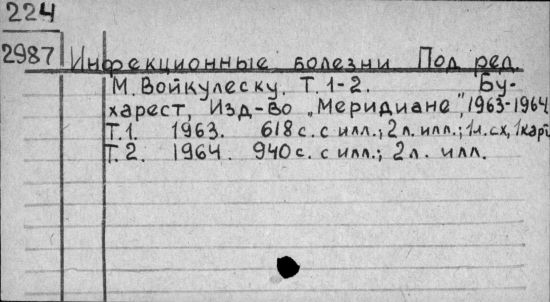 224
2987 Инфекционные болезни Под ред.
М. Войкулеску. Т. 1-2. Бу-
харест, Изд-во „Меридиане", 1963-1964
Т.1. 1963. 618 с. с илл.; 2 л. илл.; 1 л. сх, 1 карт
Т.2. 1964. 940 с. с илл.; 2 л. илл.